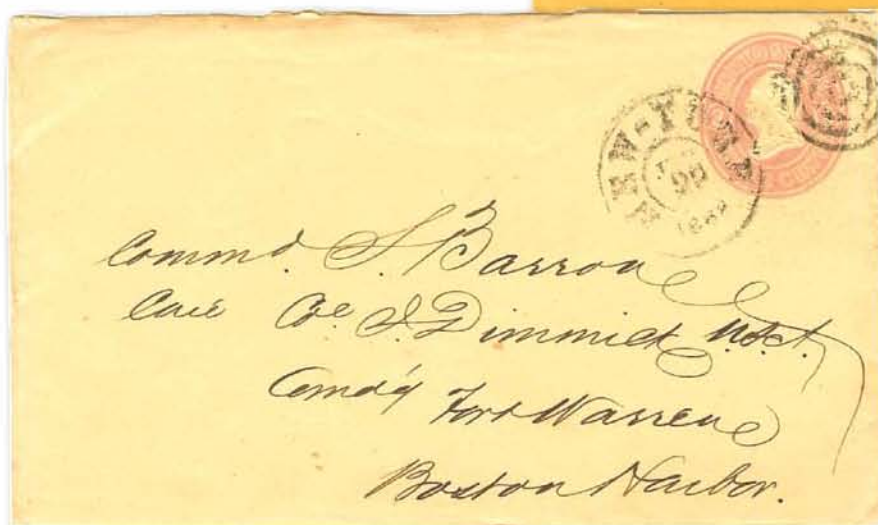 NEW-YORK
1862
Commd. S. Barron
Care Col J. Dimmick U.S.A.
Comd'g Fort Warren
Boston Harbor.